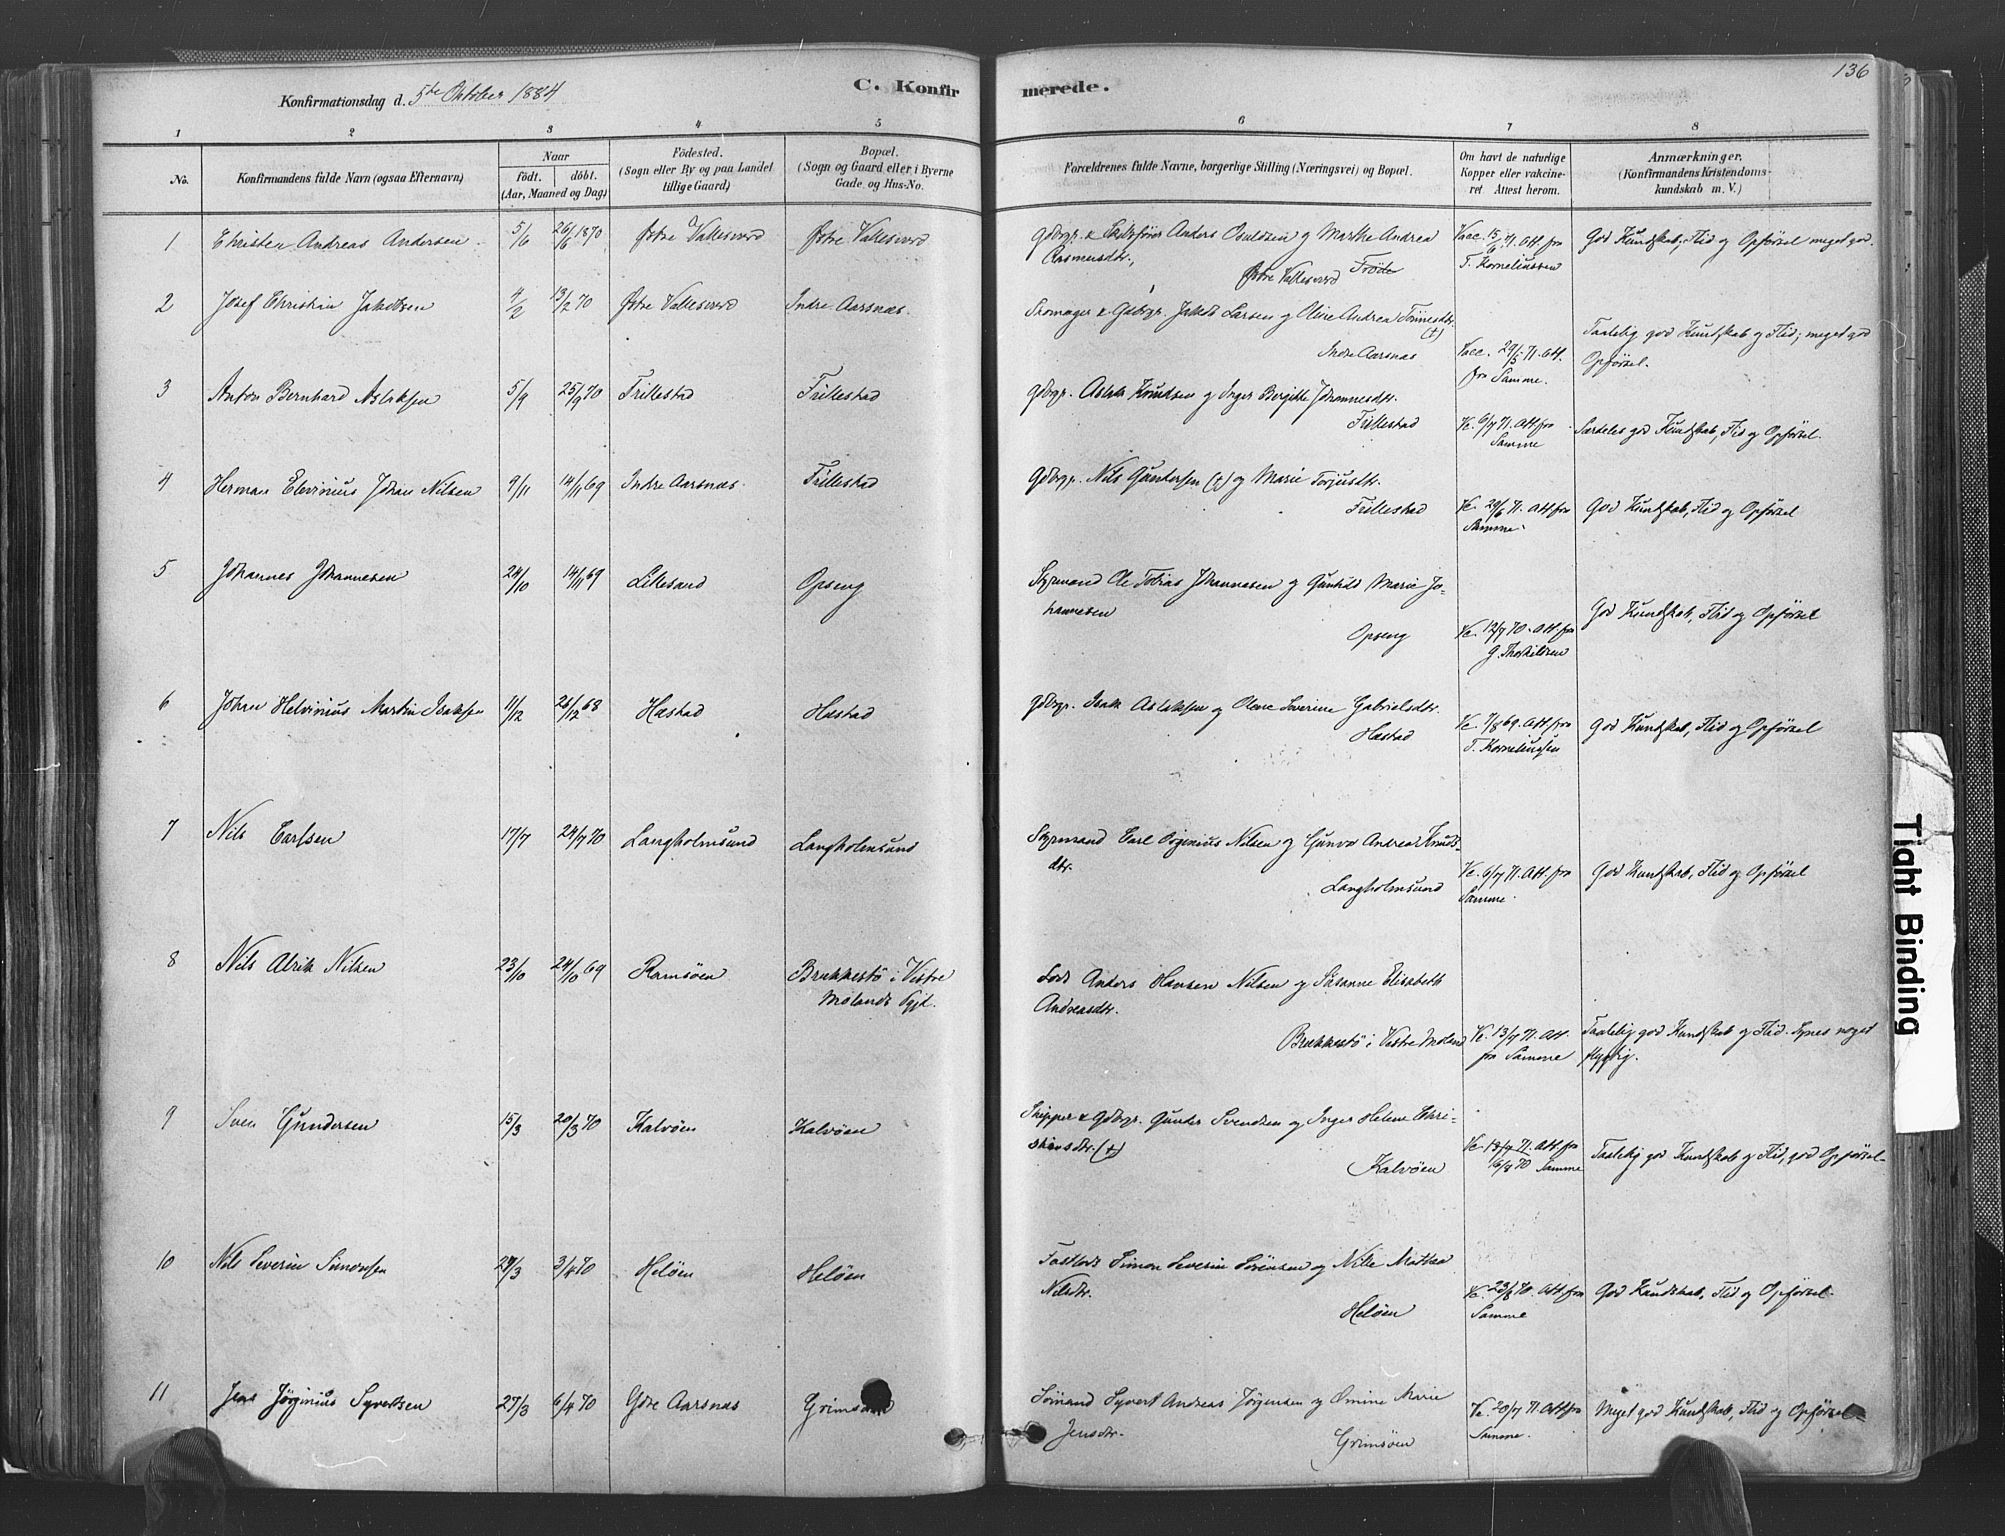 136
Konfirmationsdag d. 5te Oktober 1884
C. Konfirmerede.
1 2 3 4 5 6 7 8
No.
Konfirmandens fulde Navn (ogsaa Efternavn)
Naar
født. døbt.
(Aar, Maaned og Dag)
Fødested.
(Sogn eller By og paa Landet
tillige Gaard)
Bopæl.
(Sogn og Gaard eller i Byerne
Gade og Hus-No.
Forældrenes fulde Navne, borgerlige Stilling (Næringsvei) og Bopæl.
Om havt de naturlige
Kopper eller vakcine-
ret Attest herom.
Anmærkninger.
(Konfirmandens Kristendoms-
kundskab m. V.)
1 Christen Andreas Andersen 5/6 26/6 1870 Østre Vallesværd Østre Vallesværd Gdbrgr. & Anders Osuldsen og Marthe Andrea
Rasmusdtr.,
Østre Vallesværd
Vacc. 15/6 71. Att fra
T. Korneliussen
God Kundskab, Flid og Opførsel meget god.
2 Josef Christian Jakobsen 4/2 13/2 70 Østre Vallesværd Indre Aarsnæs.
Skomager & Gdbrgr. Jakob Larsen og Oline Andrea Tønnesdtr.
(†)
Indre Aarsnæs
Vacc. 29/5 71. Att.
fra Samme.
Taalelig god Kundskab og Flid; meget god
Opførsel.
3 Anton Bernhard Aslaksen 5/9 25/9 70 Trillestad Trillestad
Gdbrgr. Aslak Knudsen og Inger Bergitte Johannesdtr.
Trillestad
Vc. 6/7 71. Att fra
Samme
Særdeles god Kundskab, Flid og Opførsel.
4 Herman Elevinius Johan Nilsen 9/11 14/11 69 Indre Aarsnæs. Trillestad
Gdbrgr. Nils Guntersen (†) og Marie Torjusdtr.
Trillestad
Vc. 29/6 71. Att fra
Samme.
God Kundskab, Flid og Opførsel
5 Johannes Johannesen 24/10 14/11 69 Lillesand Opseng
Styrmand Ole Tobias Johannesen og Gunhild Marie Jo-
hannesen
Opseng
Vc. 12/7 70. Att. fra
G. Therkildsen
God Kundskab, Flid og Opførsel
6 Johan Helvinius Martin Isaksen 11/12 26/12 68 Hæstad Hæstad
Gdbrgr. Isak Aslaksen og Olene Severine Gabrielsdtr.
Hæstad
Vc. 7/8 69. Att fra
T. Korneliussen
God Kundskab, Flid og Opførsel
7 Nils Carlsen 17/7 24/7 70 Langholmsund Langholmsund
Styrmand Carl Nilsen og Gunvor Andrea Knuds-
dtr.
Langholmsund
Vc. 6/7 71. Att. fra
Samme.
God Kundskab, Flid og Opførsel
8 Nils Alrik Nilsen 23/10 24/10 69 Ramsøen Brækkestø i Vestre
Molands Pgjd.
Lods Anders Hansen Nilsen og Susanne Elisabeth
Andreasdtr.
Brækkestø i Vestre Moland
Vc. 13/9 71. Att.
fra Samme
Taalelig god Kundskab og Flid. Synes noget
flygtig.
9 Sven Gundersen 15/3 20/3 70 Kalvøen Kalvøen
Skipper & Gdbrgr. Gunder Svendsen og Inger Helene Chri-
stiansdtr. (†)
Kalvøen
Vc. 13/9 71. Att. fra
16/8 70 Samme
Taalelig god Kundskab og Flid, god Opførsel
10 Nils Severin Simonsen 27/3 3/4 70 Heløen Heløen
Fastlods Simon Severin Sørensen og Nille Mathea
Nilsdtr.
Heløen
Vc. 23/8 70. Att. fra
Samme
God Kundskab, Flid og Opførsel
11 Jens Jørginius Syvertsen 27/3 6/4 70 Ydre Aarsnæs Grimsøen
Sømand Syvert Andreas Jørgensen og Marie
Jensdtr.
Grimsøen
Vc. 20/7 71. Att fra
Samme.
Meget god Kundskab, Flid og Opførsel
Tight Binding